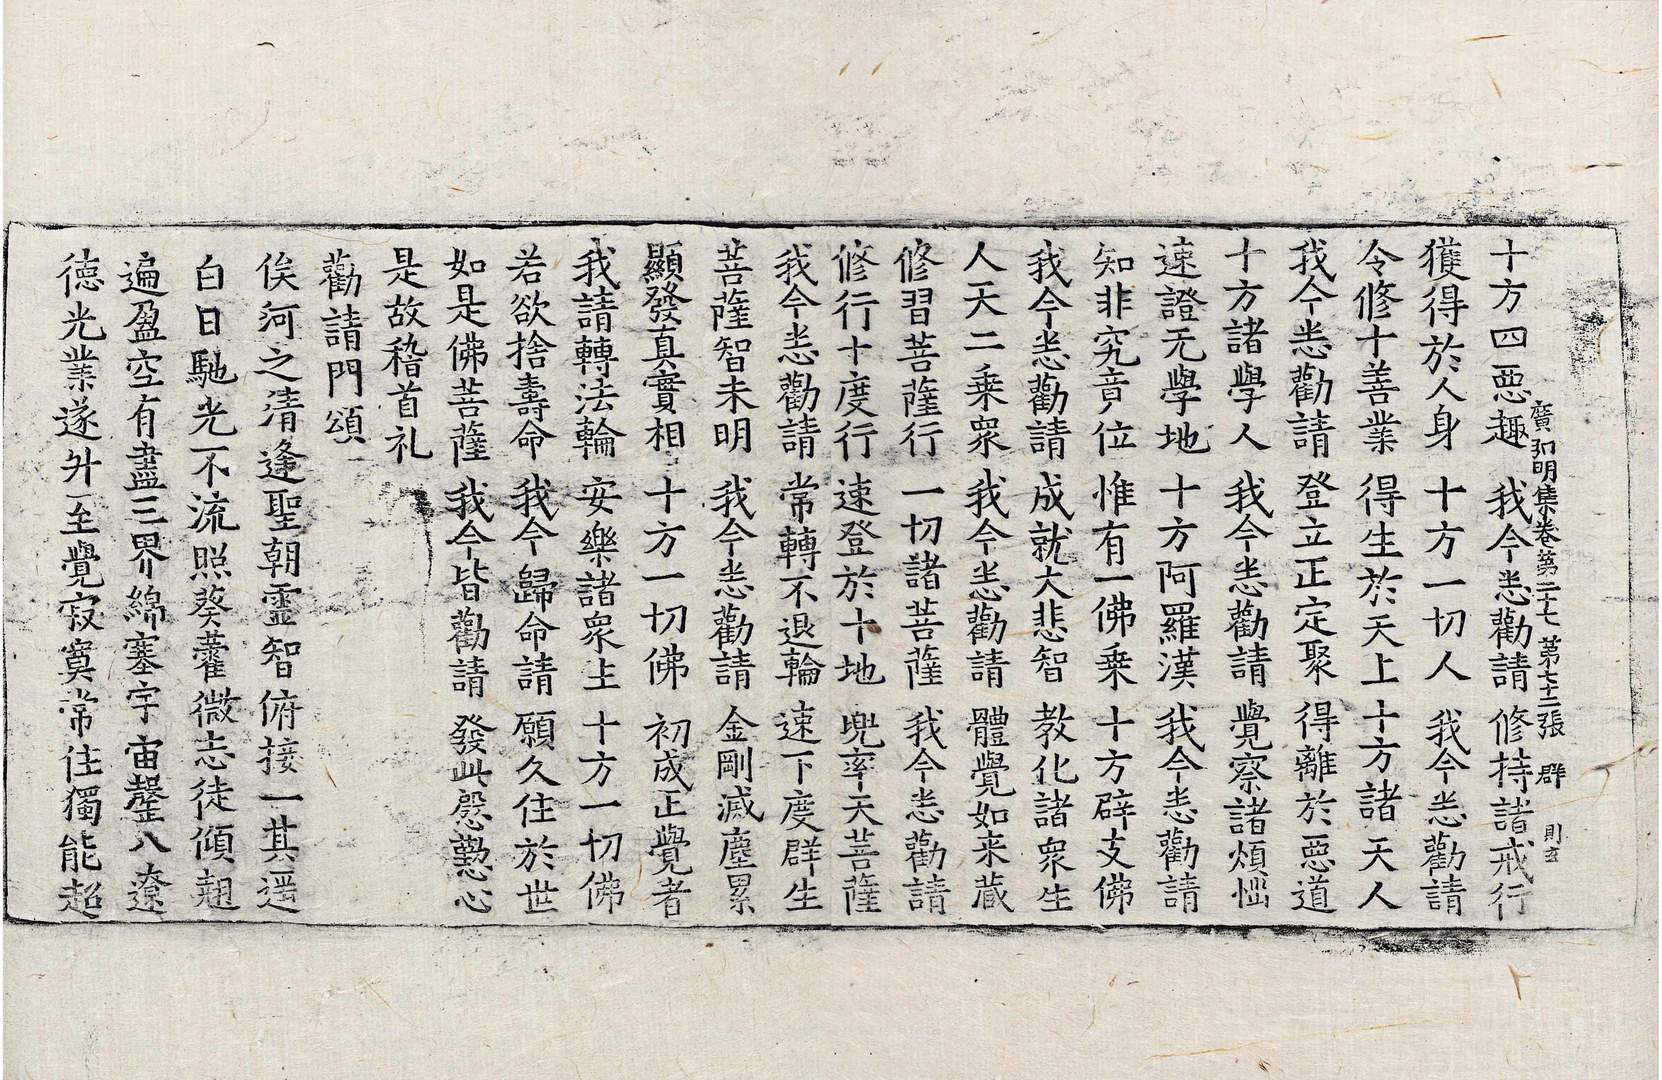 廣弘明集卷第二十七　第七十二張　群　則玄
十方四惡趣　我今悉勸請　修持諸戒行
獲得於人身　十方一切人　我今悉勸請
令修十善業　得生於天上　十方諸天人
我今悉勸請　登立正定聚　得離於惡道
十方諸學人　我今悉勸請　覺察諸煩惱
速證无學地　十方阿羅漢　我今悉勸請
知非究竟位　惟有一佛乘　十方辟支佛
我今悉勸請　成就大悲智　教化諸衆生
人天二乘衆　我今悉勸請　體覺如来藏
修習菩薩行　一切諸菩薩　我今悉勸請
修行十度行　速登於十地　兜率天菩薩
我今悉勸請　常轉不退輪　速下度群生
菩薩智未明　我今悉勸請　金剛滅塵累
顯發真實相　十方一切佛　初成正覺者
我請轉法輪　安樂諸衆生　十方一切佛
若欲捨壽命　我今歸命請　願久住於世
如是佛菩薩　我今皆勸請　發此慇懃心
是故稽首礼
勸請門頌
俟河之清逢聖朝靈智俯接一其遥
白日馳光不流照葵藿微志徒傾翹
遍盈空有盡三界綿塞宇宙罄八遼
德光業遂升至覺寂寞常住獨能超